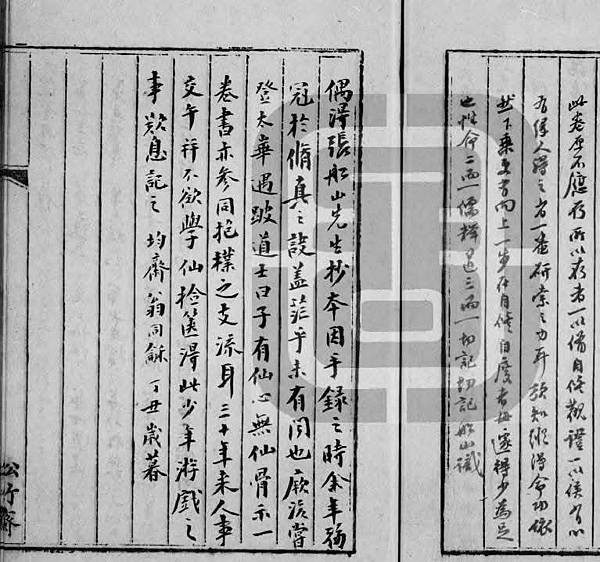 此卷原不應存所以存者一以備自修觀證一以俟有心
有緣人得之省一番研索之功耳須知縱得命功依
然下乘更有向上一步在自修自度者毋遂得少為足
也性命二而一儒釋道三而一切記切記船山識
偶得張船山先生抄本因手錄之時余年弱
冠於脩真之設蓋茫乎未有聞也厥後嘗
登太華遇跛道士曰子有仙心無仙骨示一
卷書亦參同抱樸之支流耳三十年來人事
交午并不欲學仙檢篋得此少年游戲之
事歎息記之 均齋翁同龢 丁丑歲暮
松竹齋